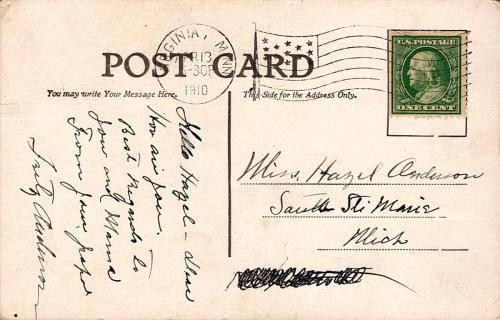 VIRGINIA, MINN.
PR 13
-30P
1910
U.S. POSTAGE
ONE CENT
POST CARD
You may write Your Message Here.
This Side for the Address Only.
Hello Hazel — Dear
How are you.
Best Regards to
you and Mama
From your
Fritz Anderson
Miss. Hazel Anderson
Sault Ste Marie
Mich